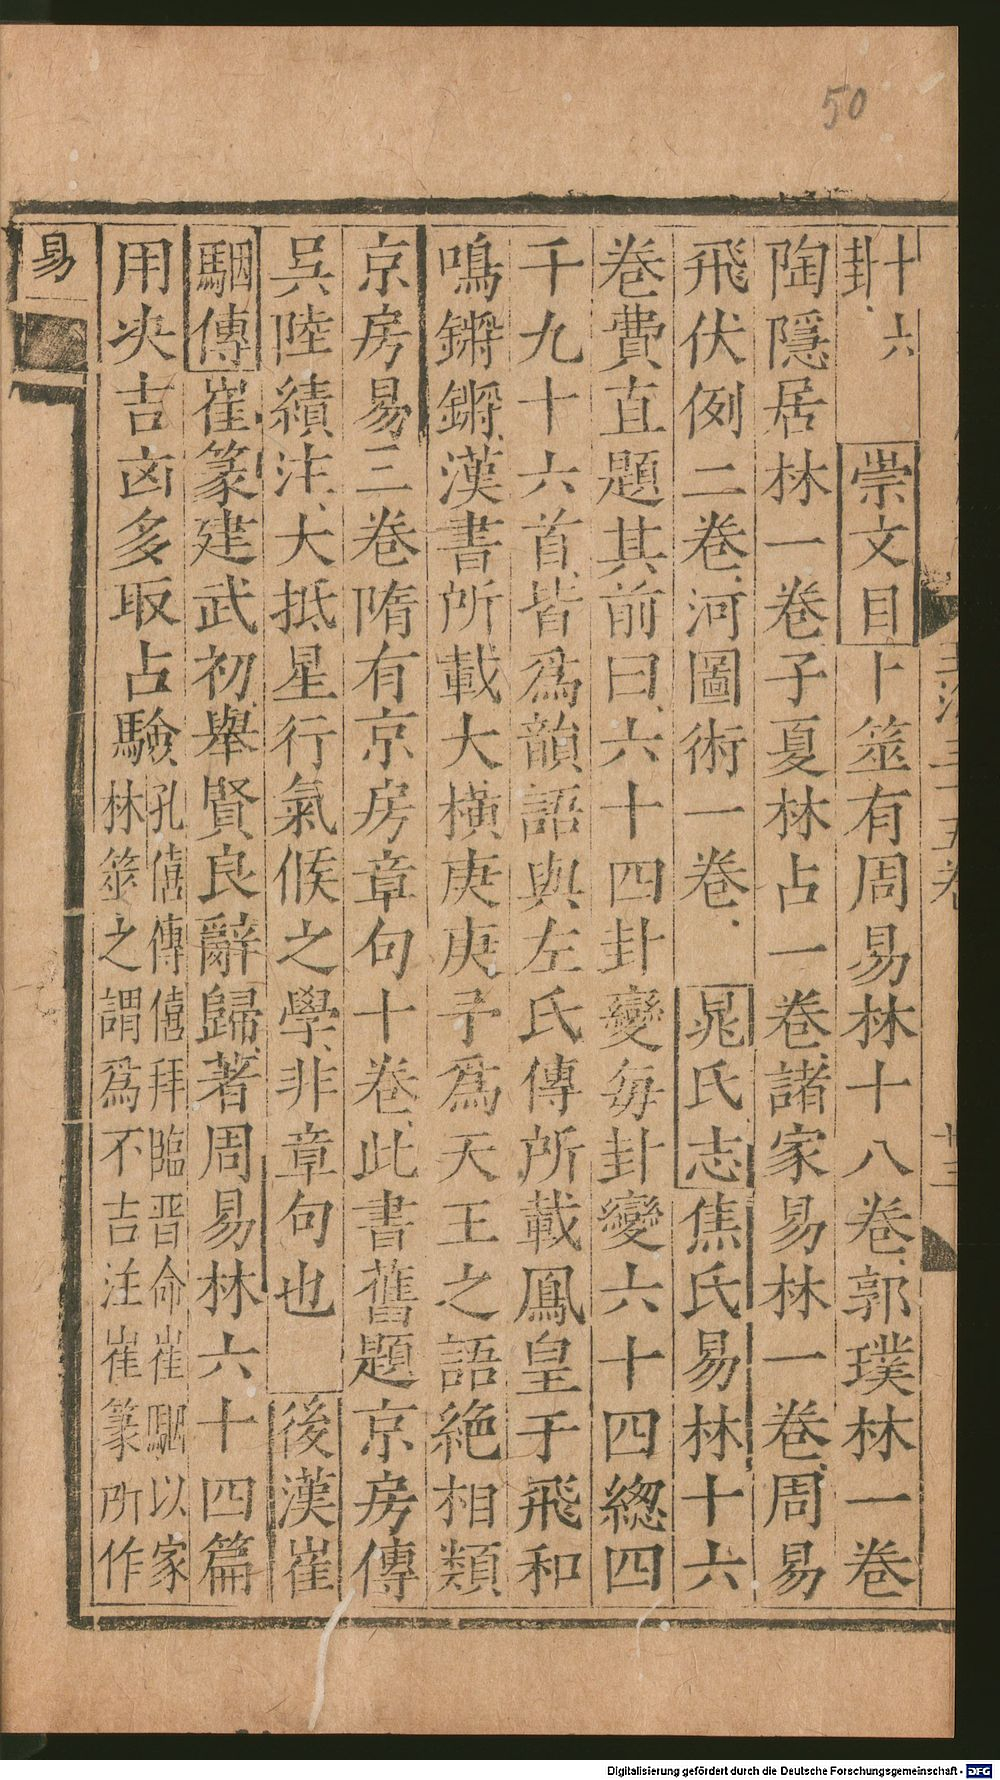 50
十六
卦崇文目卜筮有周易林十八卷郭璞林一卷
陶隱居林一卷子夏林占一卷諸家易林一卷周易
飛伏例二卷河圖術一卷晁氏志焦氏易林十六
卷費直題其前曰六十四卦變每卦變六十四總四
千九十六首皆爲韻語與左氏傳所載鳳皇于飛和
鳴鏘鏘漢書所載大橫庚庚予爲天王之語絶相類
京房易三卷隋有京房章句十卷此書舊題京房傳
吳陸績注大抵星行氣候之學非章句也後漢崔
駰傳崔篆建武初舉賢良辭歸著周易林六十四篇
用决吉凶多取占驗
孔僖傳僖拜臨晉命崔駰以家
林筮之謂爲不吉注崔篆所作
易
Digitalisierung gefördert durch die Deutsche Forschungsgemeinschaft - DFG